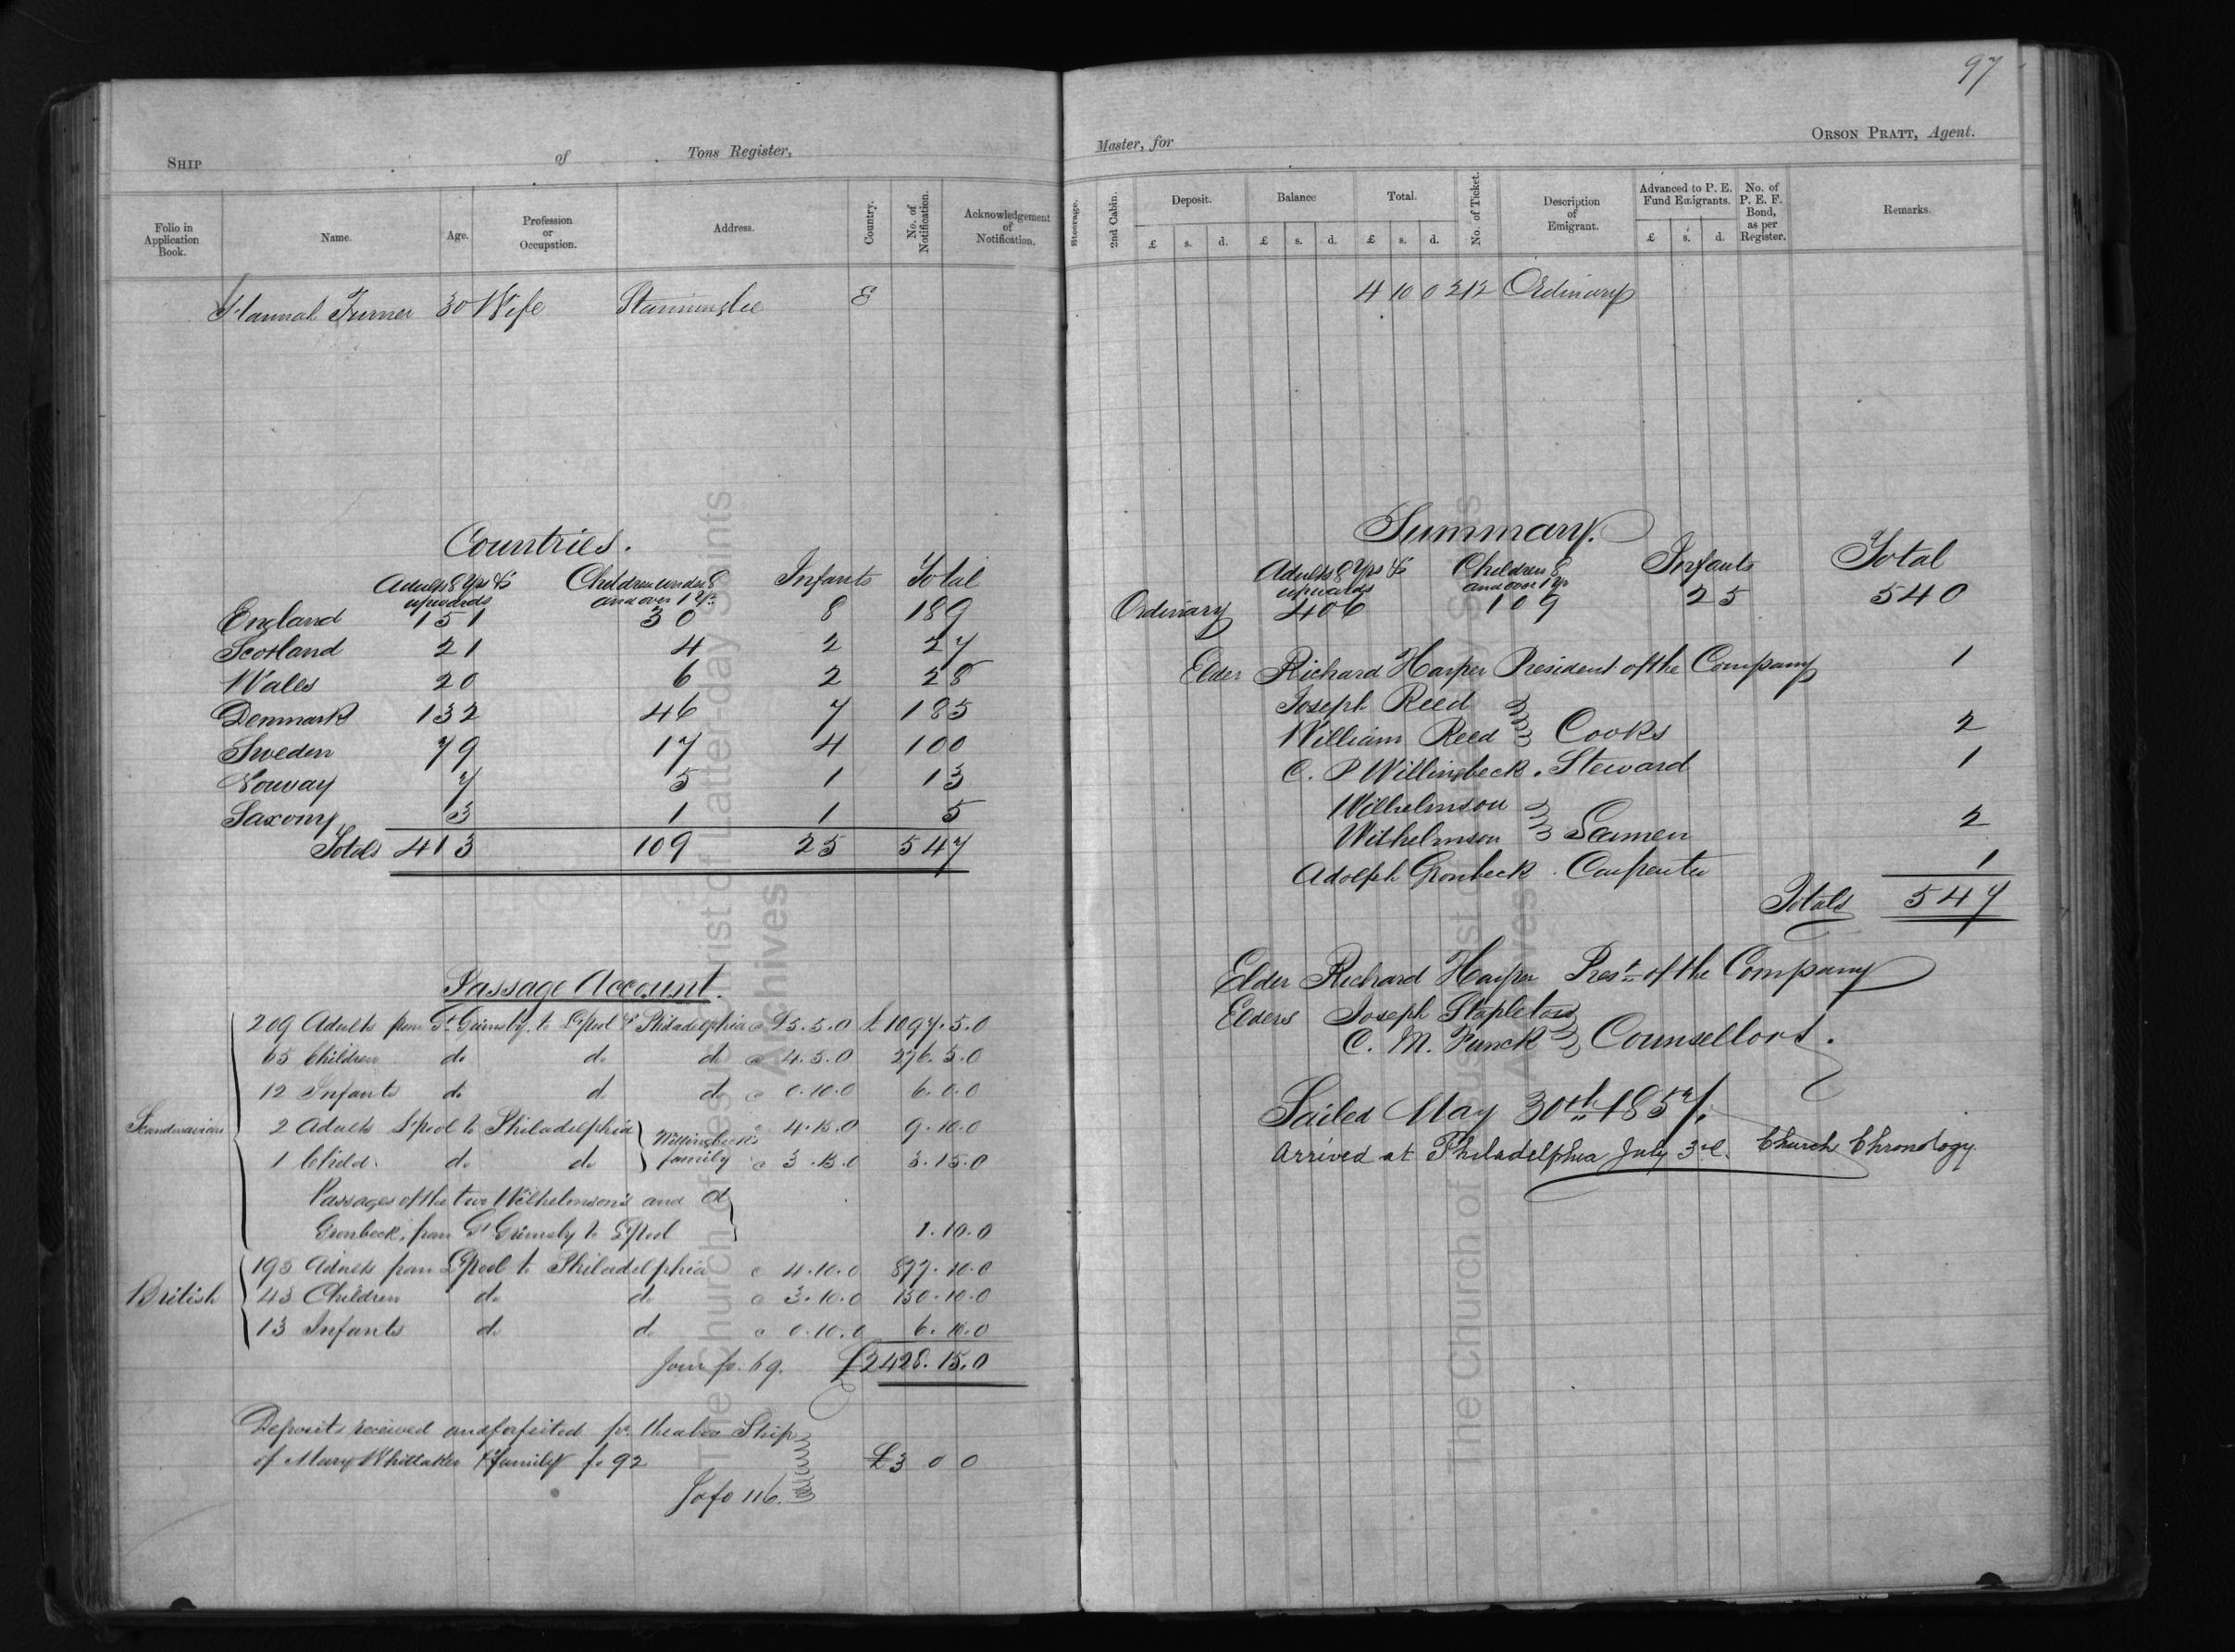 SHIP of Tons Register,
Folio in Application Book. Name. Age. Profession or Occupation. Address. Country. No. of Notification. Acknowledgement of Notification.
Hannah Turner 30 Wife Stanningley E
Countries.
Adults 8 Yrs & upwards Children under 8 and over 1 Yr. Infants Total
England 151 30 8 189
Scotland 21 4 2 27
Wales 20 6 2 28
Denmark 132 46 7 185
Sweden 79 17 4 100
Norway 7 5 1 13
Saxony 3 1 1 5
Totals 413 109 25 547
Passage Account.
Scandinavian
209 Adults from Gt Grimsby to L'pool & Philadelphia @ £5.5.0 £1097.5.0
65 Children do do do @ 4.5.0 276.5.0
12 Infants do do do @ 0.10.0 6.0.0
2 Adults L'pool to Philadelphia } Willingbeck's @ 4.15.0 9.10.0
1 Child do do } family @ 3.15.0 3.15.0
Passages of the two Wilhelmson's and A
Gronbeck, from Gt Grimsby to L'pool 1.10.0
British
195 Adults from L'pool to Philadelphia @ 4.10.0 877.10.0
43 Children do do @ 3.10.0 150.10.0
13 Infants do do @ 0.10.0 6.10.0
Jour fo. 69. £2428.15.0
Deposits received and forfeited pr. the above Ship
of Mary Whittaker & family fo 92 £3 0 0
Jo fo 116.
97
Master, for ORSON PRATT, Agent.
Steerage. 2nd Cabin. Deposit. Balance Total. No. of Ticket. Description of Emigrant. Advanced to P. E. Fund Emigrants. No. of P. E. F. Bond, as per Register. Remarks.
£ s. d. £ s. d. £ s. d. £ s. d.
4 10 0 212 Ordinary
Summary.
Adults 8 Yrs & upwards Children 8 and over 1 Yr Infants Total
Ordinary 406 109 25 540
Elder Richard Harper President of the Company 1
Joseph Reed
William Reed } Cooks 2
C. P Willingbeck . Steward 1
Wilhelmson
Wilhelmson } Seamen 2
Adolph Gronbeck . Carpenter 1
Totals 547
Elder Richard Harper Prest of the Company
Elders Joseph Stapleton
C. M. Funck } Counsellors.
Sailed May 30th 1857.
Arrived at Philadelphia July 3rd. Church Chronology.
The Church of Jesus Christ of Latter-day Saints
Archives
The Church of Jesus Christ of Latter-day Saints
Archives